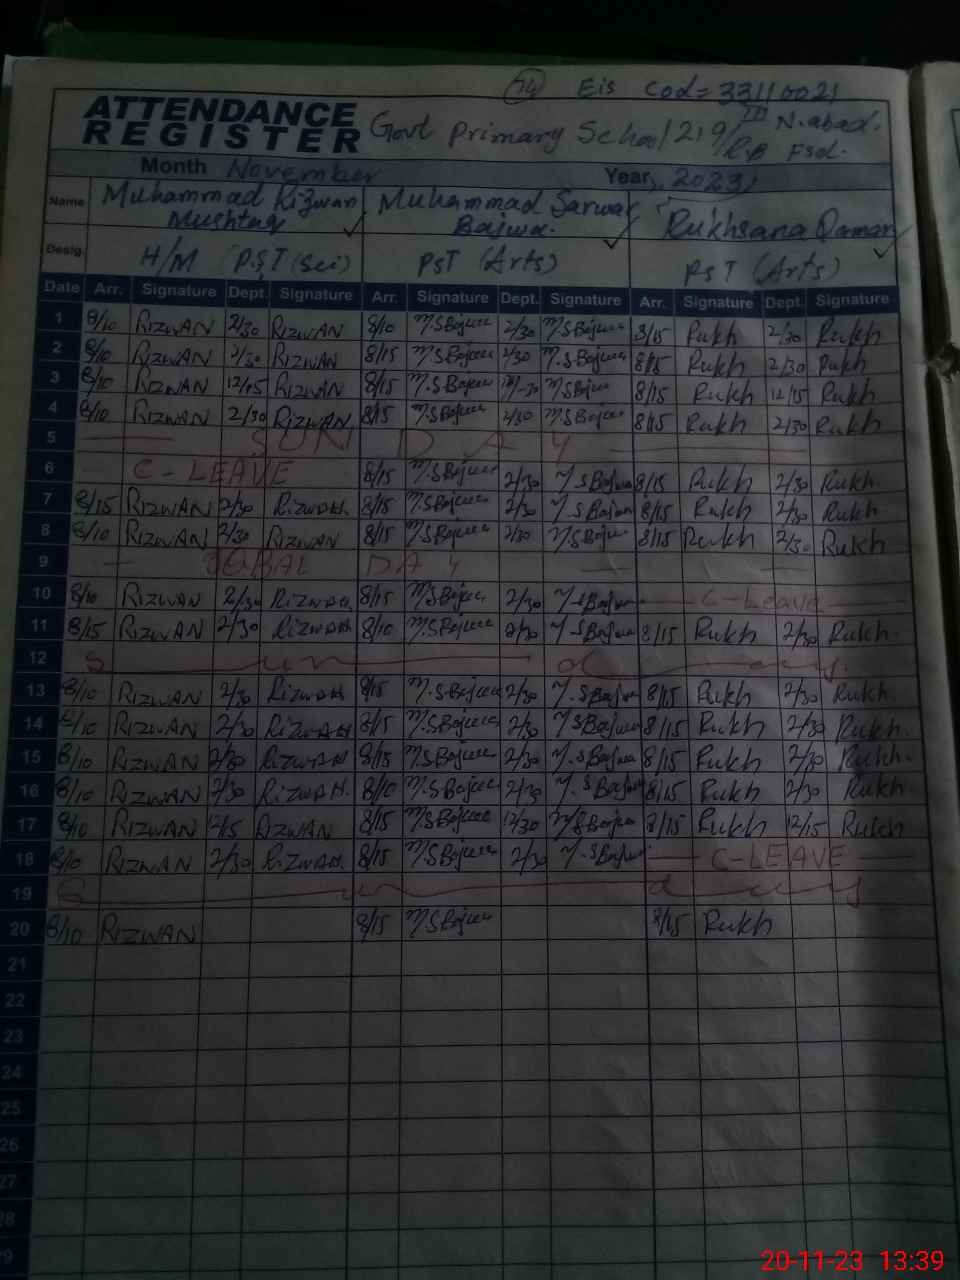 74 Eis Cod= 33110021
ATTENDANCE
REGISTER
Govt Primary School 219/ III N.abad.
R.B Fsd.
Month November Year, 2023
Name Muhammad Rizwan Mushtaq Muhammad Sarwar Bajwa. Rukhsana Qamar
Desig. H/M (P.S.T (Sci) PST (Arts) PST (Arts)
Date Arr. Signature Dept. Signature Arr. Signature Dept. Signature Arr. Signature Dept. Signature
1 8/10 RIZWAN 2/30 RIZWAN 8/10 M.SBajwa 2/30 M.SBajwa 8/15 Rukh 2/30 Rukh
2 8/10 RIZWAN 2/30 RIZWAN 8/15 M.SBajwa 2/30 M.SBajwa 8/15 Rukh 2/30 Rukh
3 8/10 RIZWAN 12/45 RIZWAN 8/15 M.SBajwa M.SBajwa 8/15 Rukh 12/15 Rukh
4 8/10 RIZWAN 2/30 RIZWAN 8/15 M.SBajwa 2/30 M.SBajwa 8/15 Rukh 2/30 Rukh
5 SUNDAY
6 C-LEAVE 8/15 M.SBajwa 2/30 M.SBajwa 8/15 Rukh 2/30 Rukh.
7 8/15 RIZWAN 2/30 RIZWAN. 8/15 M.SBajwa 2/30 M.SBajwa 8/15 Rukh 2/30 Rukh
8 8/10 RIZWAN 2/30 RIZWAN 8/15 M.SBajwa 2/30 M.SBajwa 8/15 Rukh 2/30 Rukh
9 IQBAL DAY
10 8/10 RIZWAN 2/30 RIZWAN 8/15 M.SBajwa 2/30 M.SBajwa C-Leave
11 8/15 RIZWAN 2/30 RIZWAN 8/10 M.SBajwa 2/30 M.SBajwa 8/15 Rukh 2/30 Rukh.
12 Sunday.
13 8/10 RIZWAN 2/30 RIZWAN 8/15 M.SBajwa 2/30 M.SBajwa 8/15 Rukh 2/30 Rukh.
14 8/10 RIZWAN 2/30 RIZWAN 8/15 M.SBajwa 2/30 M.SBajwa 8/15 Rukh 2/30 Rukh.
15 8/10 RIZWAN 2/30 RIZWAN 8/15 M.SBajwa 2/30 M.SBajwa 8/15 Rukh 2/30 Rukh.
16 8/10 RIZWAN 2/30 RIZWAN. 8/10 M.SBajwa 2/30 M.SBajwa 8/15 Rukh 2/30 Rukh.
17 8/10 RIZWAN 12/15 RIZWAN 8/15 M.SBajwa 12/30 M.SBajwa 8/15 Rukh 12/15 Rukh
18 8/10 RIZWAN 2/30 RIZWAN. 8/15 M.SBajwa 2/30 M.SBajwa C-LEAVE
19 Sunday
20 8/10 RIZWAN 8/15 M.SBajwa 8/15 Rukh
21
22
23
24
25
26
27
28
29
20-11-23 13:39